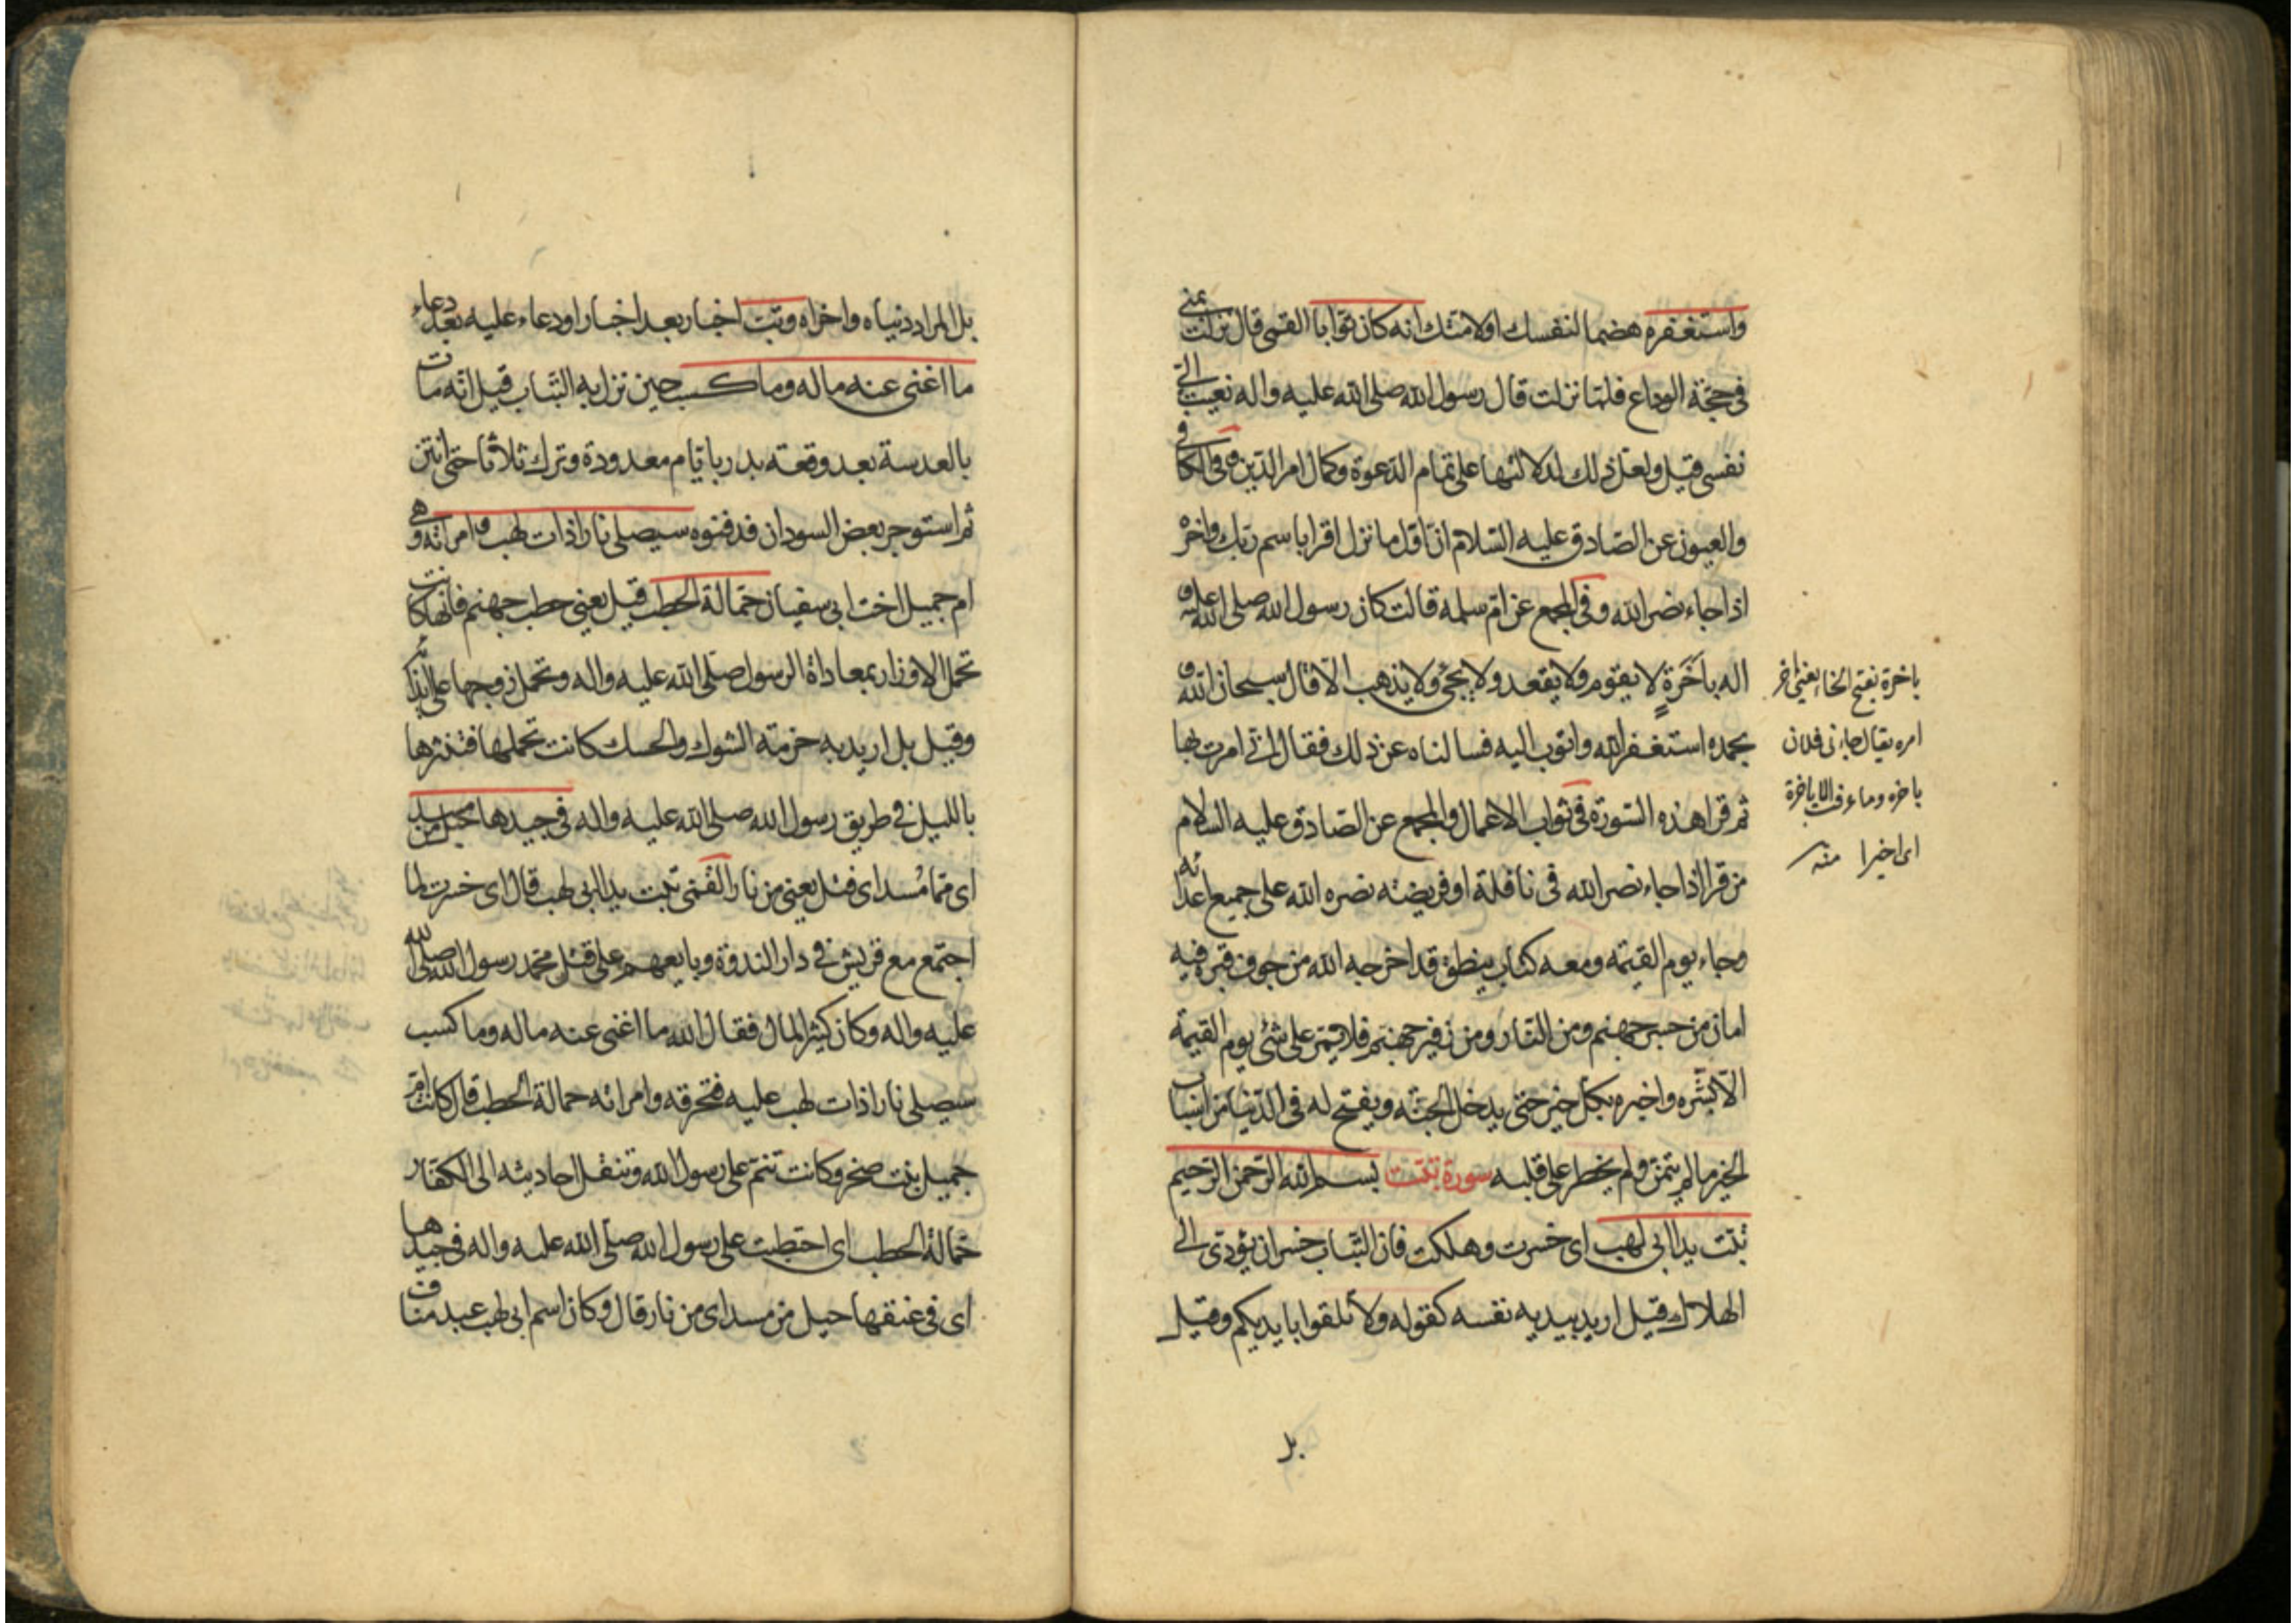 واستغفره هضما لنفسك او لامتك انه كان توابا القمى قال نزلت بمنى
فى حجة الوداع فلما نزلت قال رسول الله صلى الله عليه واله نعيت الى
نفسى قيل ولعل ذلك لدلالتها على تمام الدعوة وكمال امر الدين وفى الكافى
والعيون عن الصادق عليه السلام ان اول ما نزل اقرا باسم ربك واخره
اذا جاء نصر الله وفى المجمع عن ام سلمه قالت كان رسول الله صلى الله عليه و
اله باخرة لا يقوم ولا يقعد ولا يجئ ولا يذهب الا قال سبحان الله و
بحمده استغفر الله واتوب اليه فسالناه عن ذلك فقال انى امرت بها
ثم قرا هذه السورة فى ثواب الاعمال والمجمع عن الصادق عليه السلام
من قرا اذا جاء نصر الله فى نافلة او فريضة نصره الله على جميع اعدائه
وجاء يوم القيمه ومعه كتاب ينطق قد اخرجه الله من جوف قبره فيه
امان من جسر جهنم ومن النار ومن زفير جهنم فلا يمر على شئ يوم القيمة
الا بشره واخبره بكل خير حتى يدخل الجنة ويفتح له فى الدنيا من اسباب
الخير ما لم يتمن ولم يخطر على قلبه سورة تبت بسم الله الرحمن الرحيم
تبت يدا ابى لهب اى خسرت وهلكت فان التباب خسران يؤدى الى
الهلاك قيل اريد بيديه نفسه كقوله ولا تلقوا بايديكم وقيل
بل
باخرة بفتح الخاء يعنى اخر
امره يقال جاءنى فلان
باخره وما عرفته الا باخرة
اى اخيرا منه
بل المراد دنياه واخراه وتب اخبار بعد اخبار او دعاء عليه بعد دعاء
ما اغنى عنه ماله وما كسب حين نزل به التباب قيل انه مات
بالعدسة بعد وقعة بدر بايام معدودة وترك ثلاثا حتى انتن
ثم استوجر بعض السودان فدفنوه سيصلى نارا ذات لهب وامراته وهى
ام جميل اخت ابى سفيان حمالة الحطب قيل يعنى حطب جهنم فانها كانت
تحمل الاوزار بمعاداة الرسول صلى الله عليه واله وتحمل زوجها على ايذائه
وقيل بل اريد به حزمة الشوك والحسك كانت تحملها فتنثرها
بالليل فى طريق رسول الله صلى الله عليه واله فى جيدها حبل من مسد
اى مما مسد اى فتل يعنى من نار القمى تبت يدا ابى لهب قال اى خسرت لما
اجتمع مع قريش فى دار الندوة وبايعهم على قتل محمد رسول الله صلى الله
عليه واله وكان كثير المال فقال الله ما اغنى عنه ماله وما كسب
سيصلى نارا ذات لهب عليه فتحرقه وامراته حمالة الحطب قال كانت ام
جميل بنت صخر وكانت تنم على رسول الله وتنقل احاديثه الى الكفار
حمالة الحطب اى احتطبت على رسول الله صلى الله عليه واله فى جيدها
اى فى عنقها حبل من مسد اى من نار قال وكان اسم ابى لهب عبد مناف